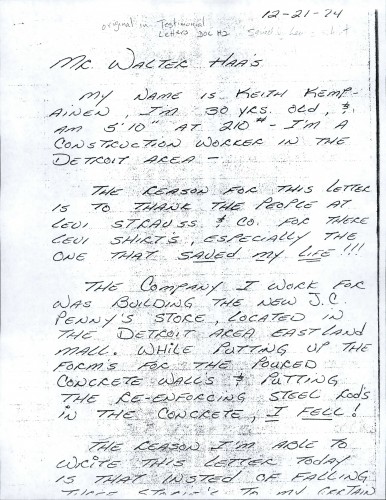 12-21-74
original in Testimonial
Letters Doc H2
Mr. Walter Haas
My name is Keith Kemp-
ainen, I'm 30 yrs. old, &
am 5'10" at 210# - I'm a
construction worker in the
Detroit area -
The reason for this letter
is to thank the people at
Levi Strauss & Co. for there
Levi shirts, especially the
one that saved my life!!!
The company I work for
was building the new J.C.
Penny's store, located in
the Detroit area Eastland
Mall. While putting up the
form's for the poured
concrete wall's & putting
the re-enforcing steel rod's
in the concrete, I fell!
The reason I'm able to
write this letter today
is that insted of falling
three storie's to my certain